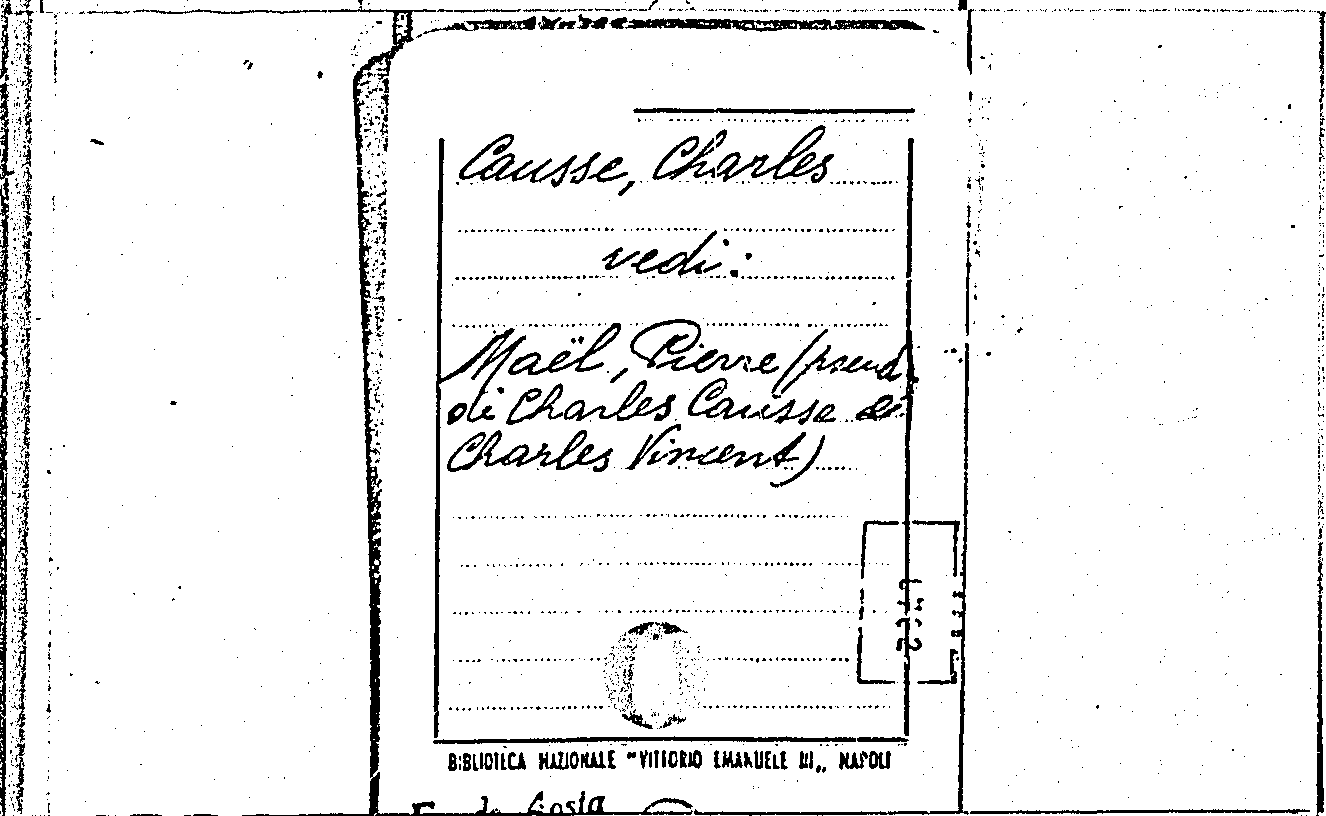 Causse, Charles
vedi:
Maël, Pierre (pseud.
di Charles Causse e di
Charles Vincent)
BIBLIOTECA NAZIONALE "VITTORIO EMANUELE III„ NAPOLI
Costa